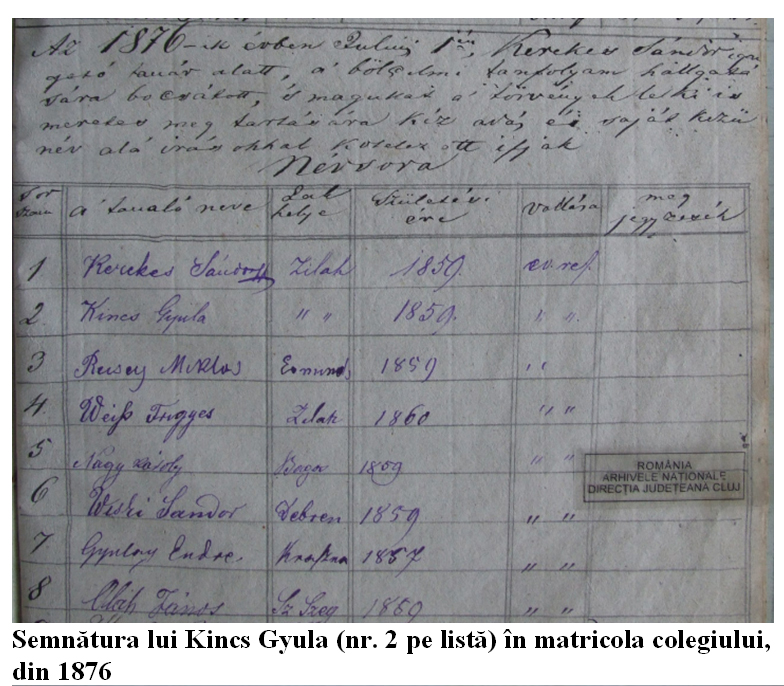 Az 1876-ik évben Julius 1én, Kerekes Sándor igaz
gató tanár alatt, a' bölcselmi tanfolyam hallgatá
sára bocsátott, is magukat a' törvények leki is
meretes meg tartására kéz adás és saját kezü
név alá irásokkal kötelezett ifjak
Névsora
Sor Szám a' tanuló neve Lak helye Születési éve vallása meg jegyzések
1 Kerekes Sándor Zilah 1859. ev. ref.
2. Kincs Gyula " " 1859. " "
3 Miklos 1859 " "
4. Weiß Frigyes Zilah 1860 " "
5 Nagy Károly 1859 " "
6 Sandor Debren 1859 " "
7. Endre Kraßna 1857 " "
8 Oláh János Sz Szeg 1859 " "
ROMÂNIA
ARHIVELE NAȚIONALE
DIRECȚIA JUDEȚEANĂ CLUJ
Semnătura lui Kincs Gyula (nr. 2 pe listă) în matricola colegiului,
din 1876